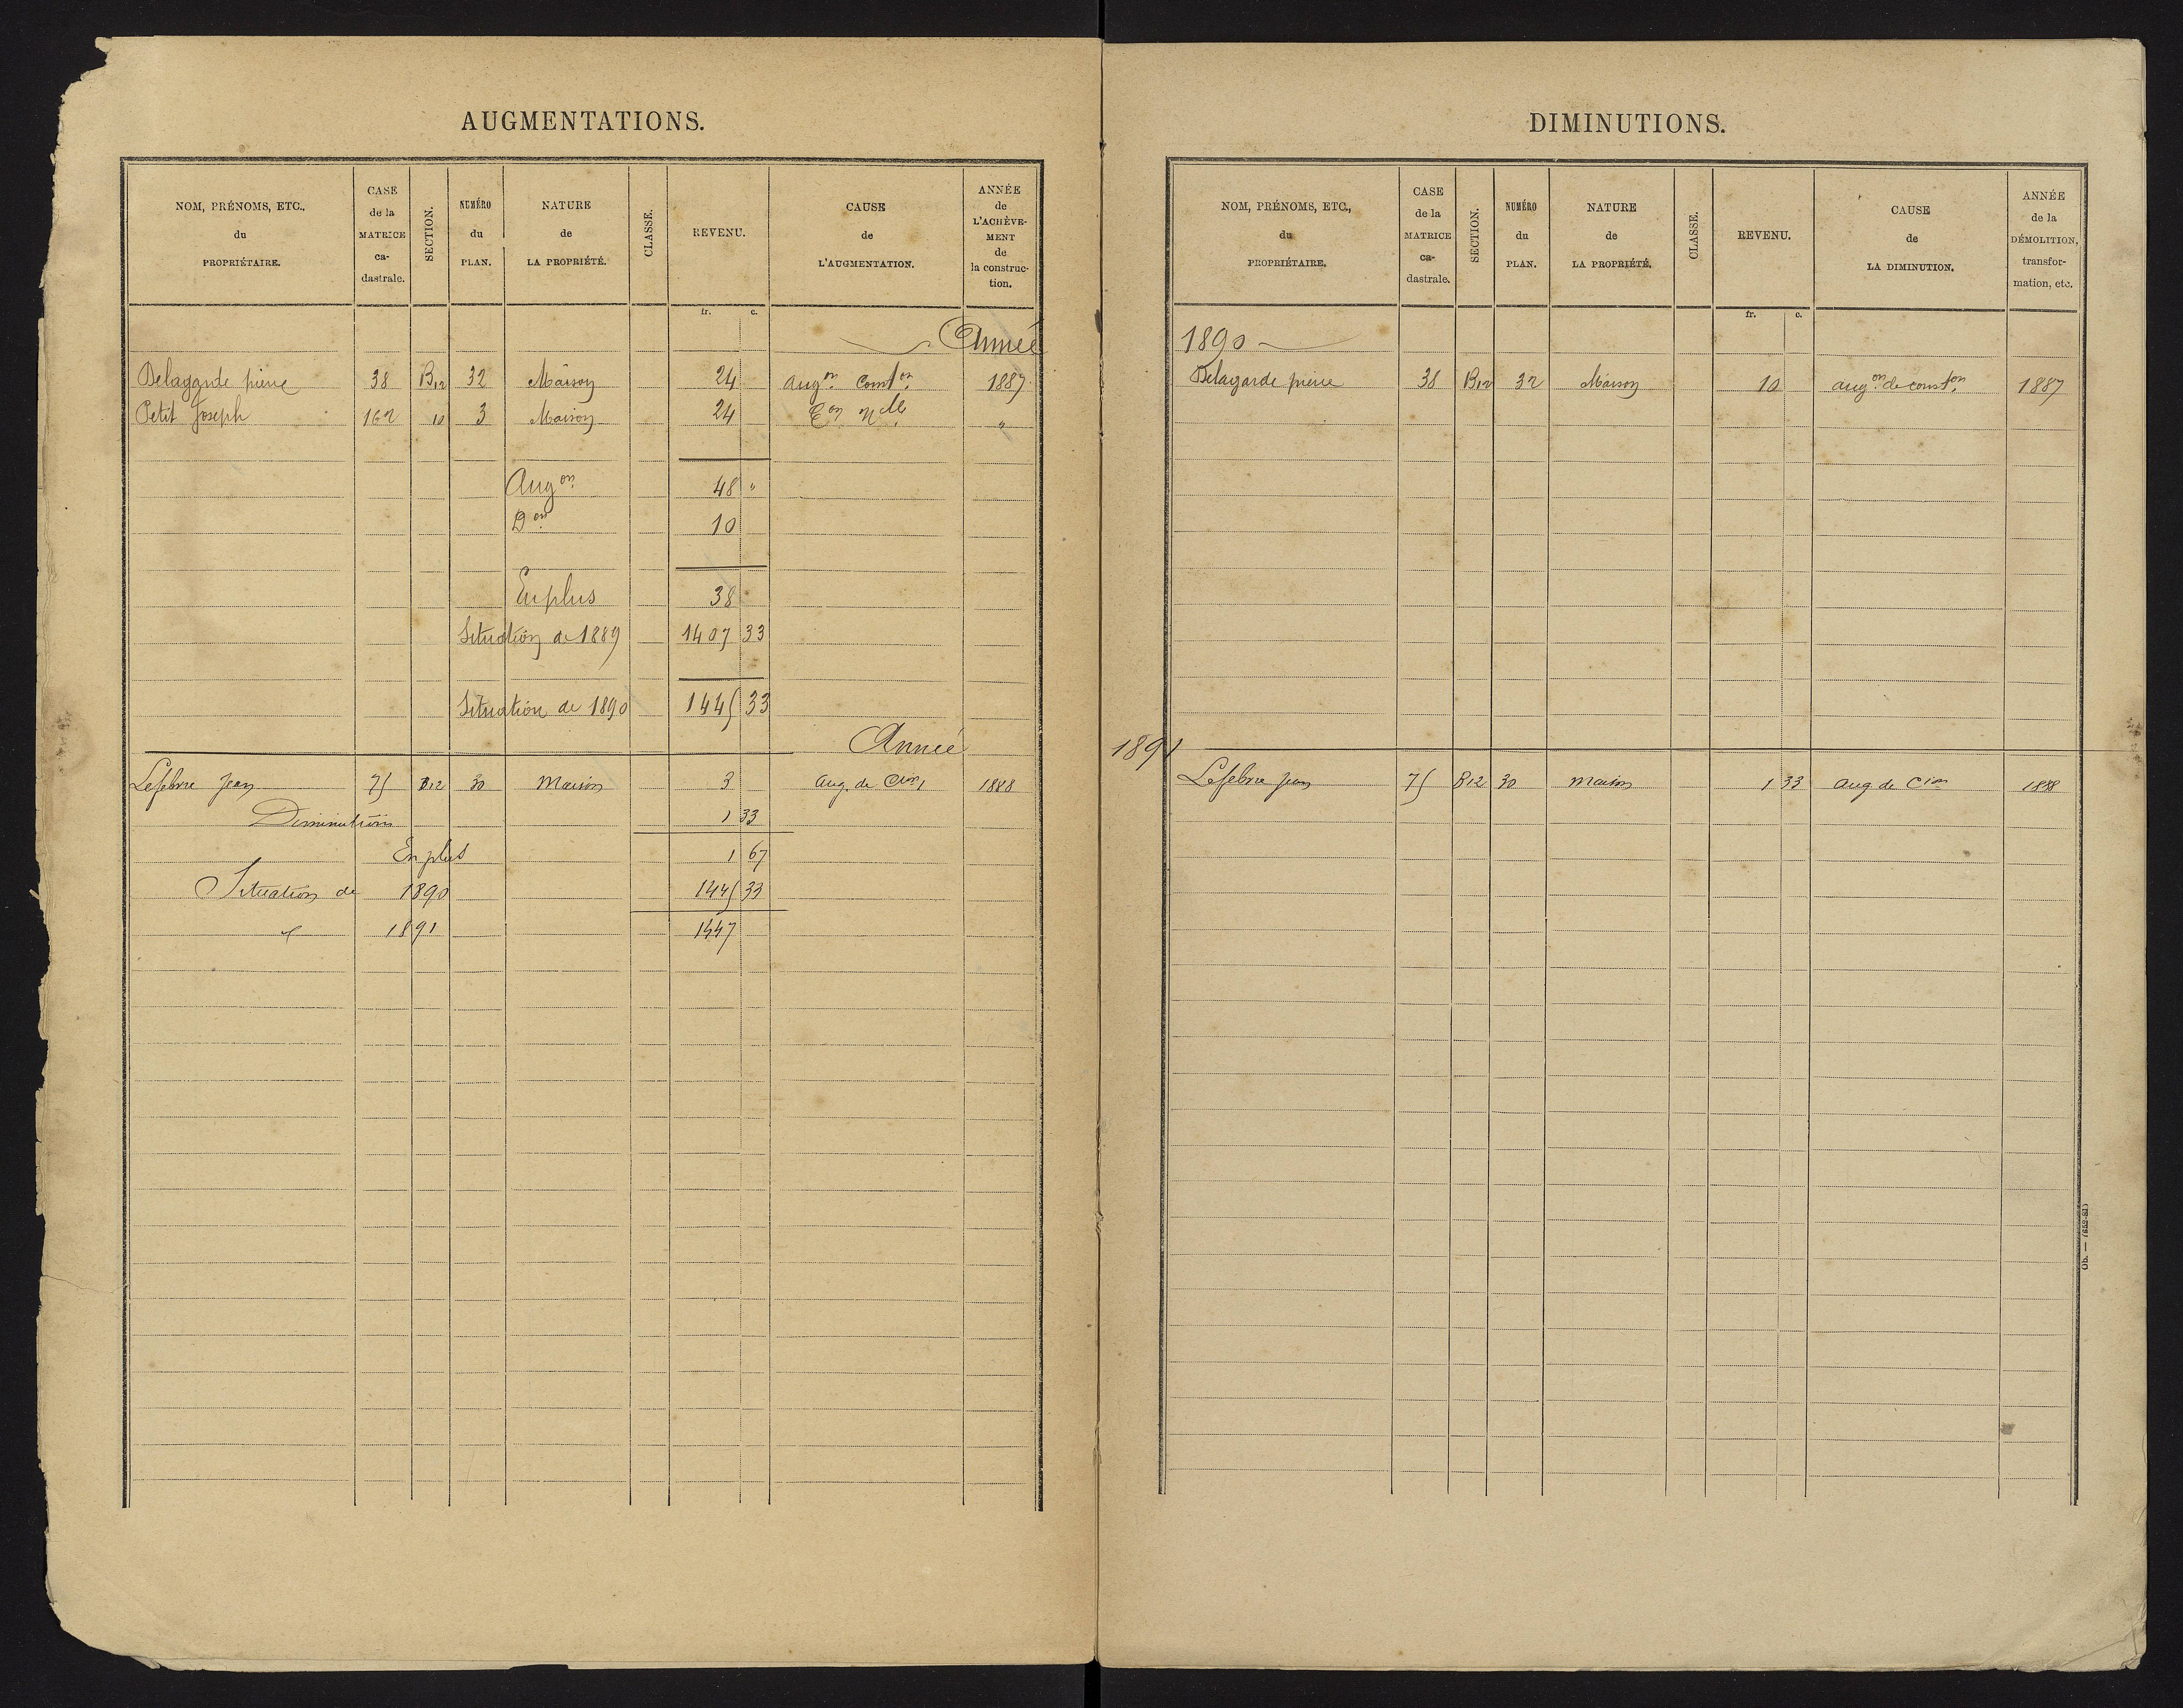 AUGMENTATIONS.
NOM, PRÉNOMS, ETC., du PROPRIÉTAIRE.
CASE de la MATRICE ca-dastrale.
SECTION.
NUMÉRO du PLAN.
NATURE de LA PROPRIÉTÉ.
CLASSE.
REVENU.
CAUSE de L'AUGMENTATION.
ANNÉE de L'ACHÈVE-MENT de la construc-tion.
fr. c.
Année
Delagarde pierre 38 B12 32 Maison 24 augon Conston 1887
Petit Joseph 162 10 3 Maison 24 Con Nlle "
Augon 48 "
Don 10
En plus 38
Situation de 1889 1407 33
Situation de 1890 1445 33
Année
Lefebvre Jean 75 B12 30 Maison 3 Aug. de Cion 1888
Diminution 1 33
En plus 1 67
Situation de 1890 1445 33
" 1891 1447
DIMINUTIONS.
NOM, PRÉNOMS, ETC., du PROPRIÉTAIRE.
CASE de la MATRICE ca-dastrale.
SECTION.
NUMÉRO du PLAN.
NATURE de LA PROPRIÉTÉ.
CLASSE.
REVENU.
CAUSE de LA DIMINUTION.
ANNÉE de la DÉMOLITION, transfor-mation, etc.
fr. c.
1890
Delagarde pierre 38 B12 32 Maison 10 augon de conston 1887
1891
Lefebvre Jean 75 B12 30 maison 1 33 aug de Cion 1888